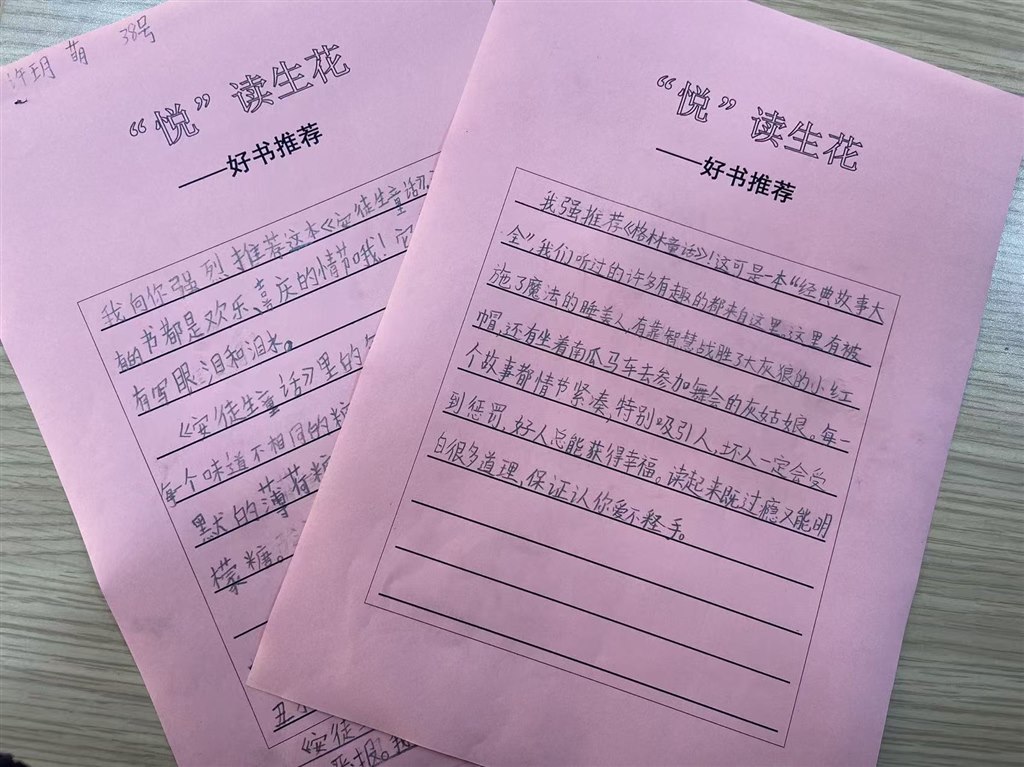 许玥萌 38号
“悦”读生花
——好书推荐
我向你强烈推荐这本《安徒生童话》
有的书都是欢乐、喜庆的情节哦！它
有写眼泪和泪水。
《安徒生童话》里的
每个味道不相同的糖
黑犬的薄荷糖
檬糖。
丑
《安徒生
“悦”读生花
——好书推荐
我强推荐《格林童话》！这可是一本“经典故事大
全”我们听过的许多有趣的都来自这里.这里有被
施了魔法的睡美人有靠智慧战胜了大灰狼的小红
帽,还有坐着南瓜马车去参加舞会的灰姑娘。每一
个故事都情节紧凑,特别吸引人,坏人一定会受
到惩罚,好人总能获得幸福。读起来既过瘾又能明
白很多道理,保证认你爱不释手。